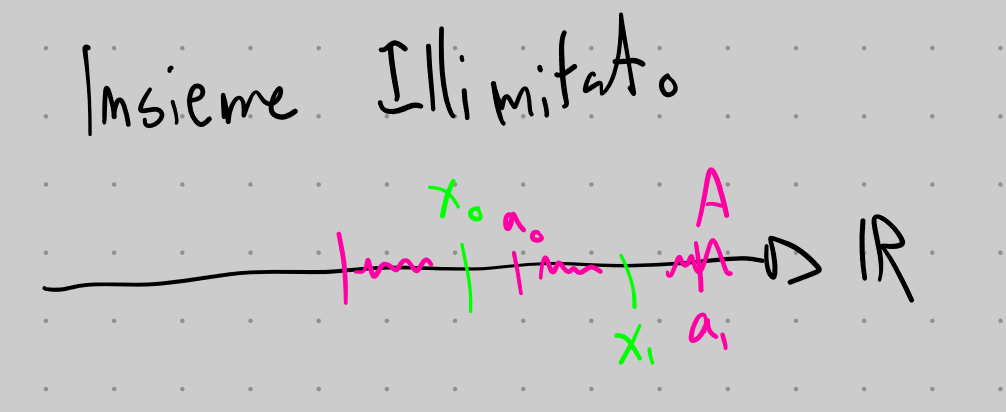 Insieme Illimitato
A
x₀ a₀
ℝ
x₁ a₁